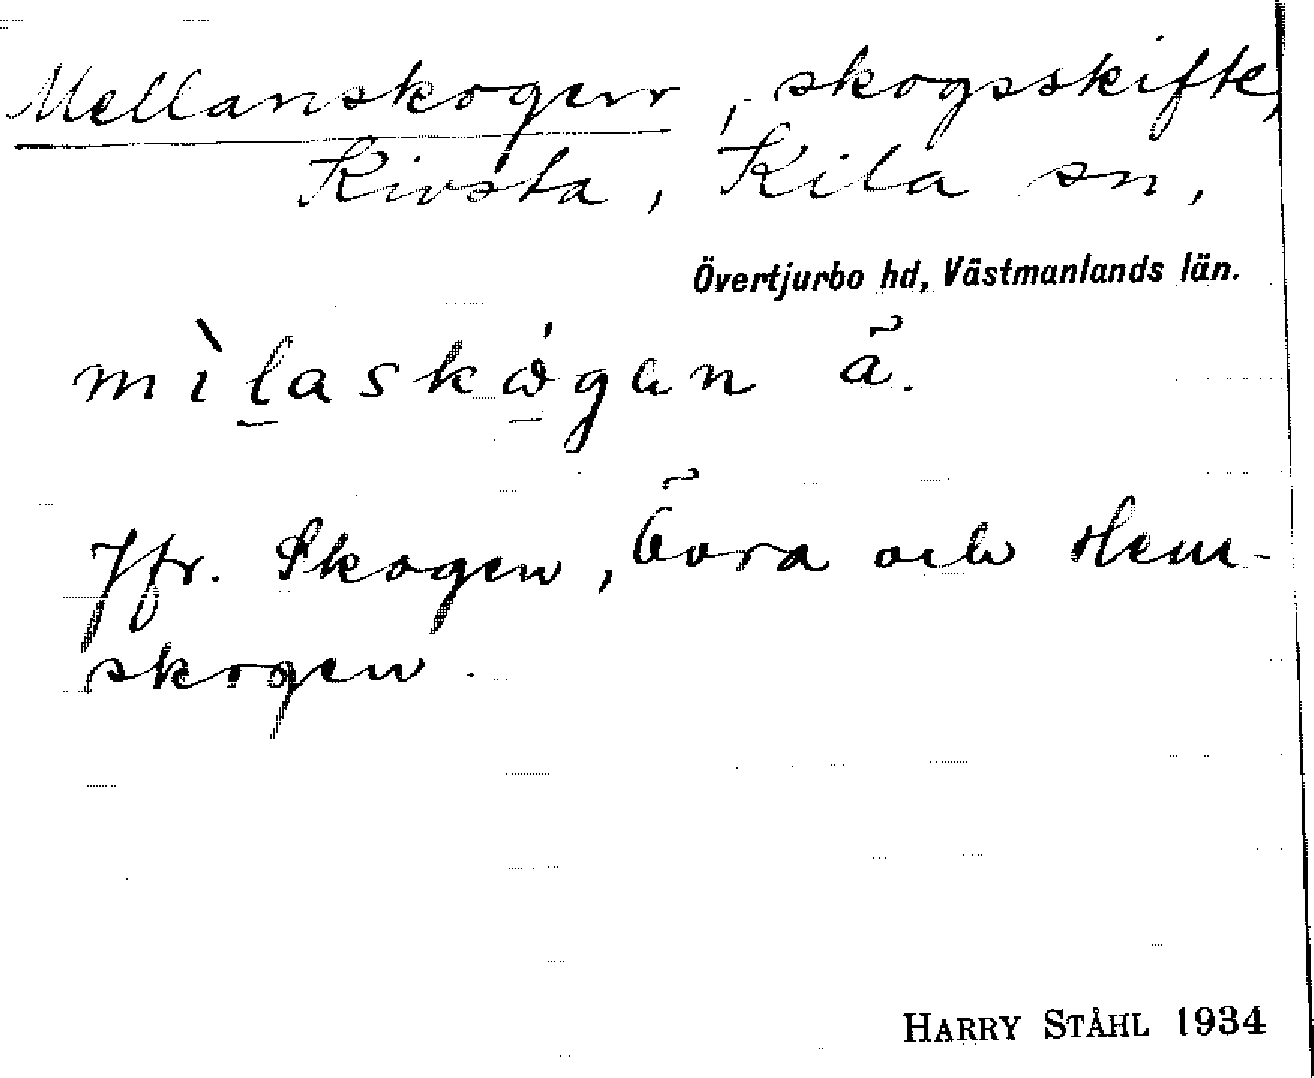 Mellanskogen, skogsskifte,
Kivsta, Kila sn,
Övertjurbo hd, Västmanlands län.
mìlaskógen ä.
Jfr. Skogen, Övra och Hem-
skogen.
HARRY STÅHL 1934